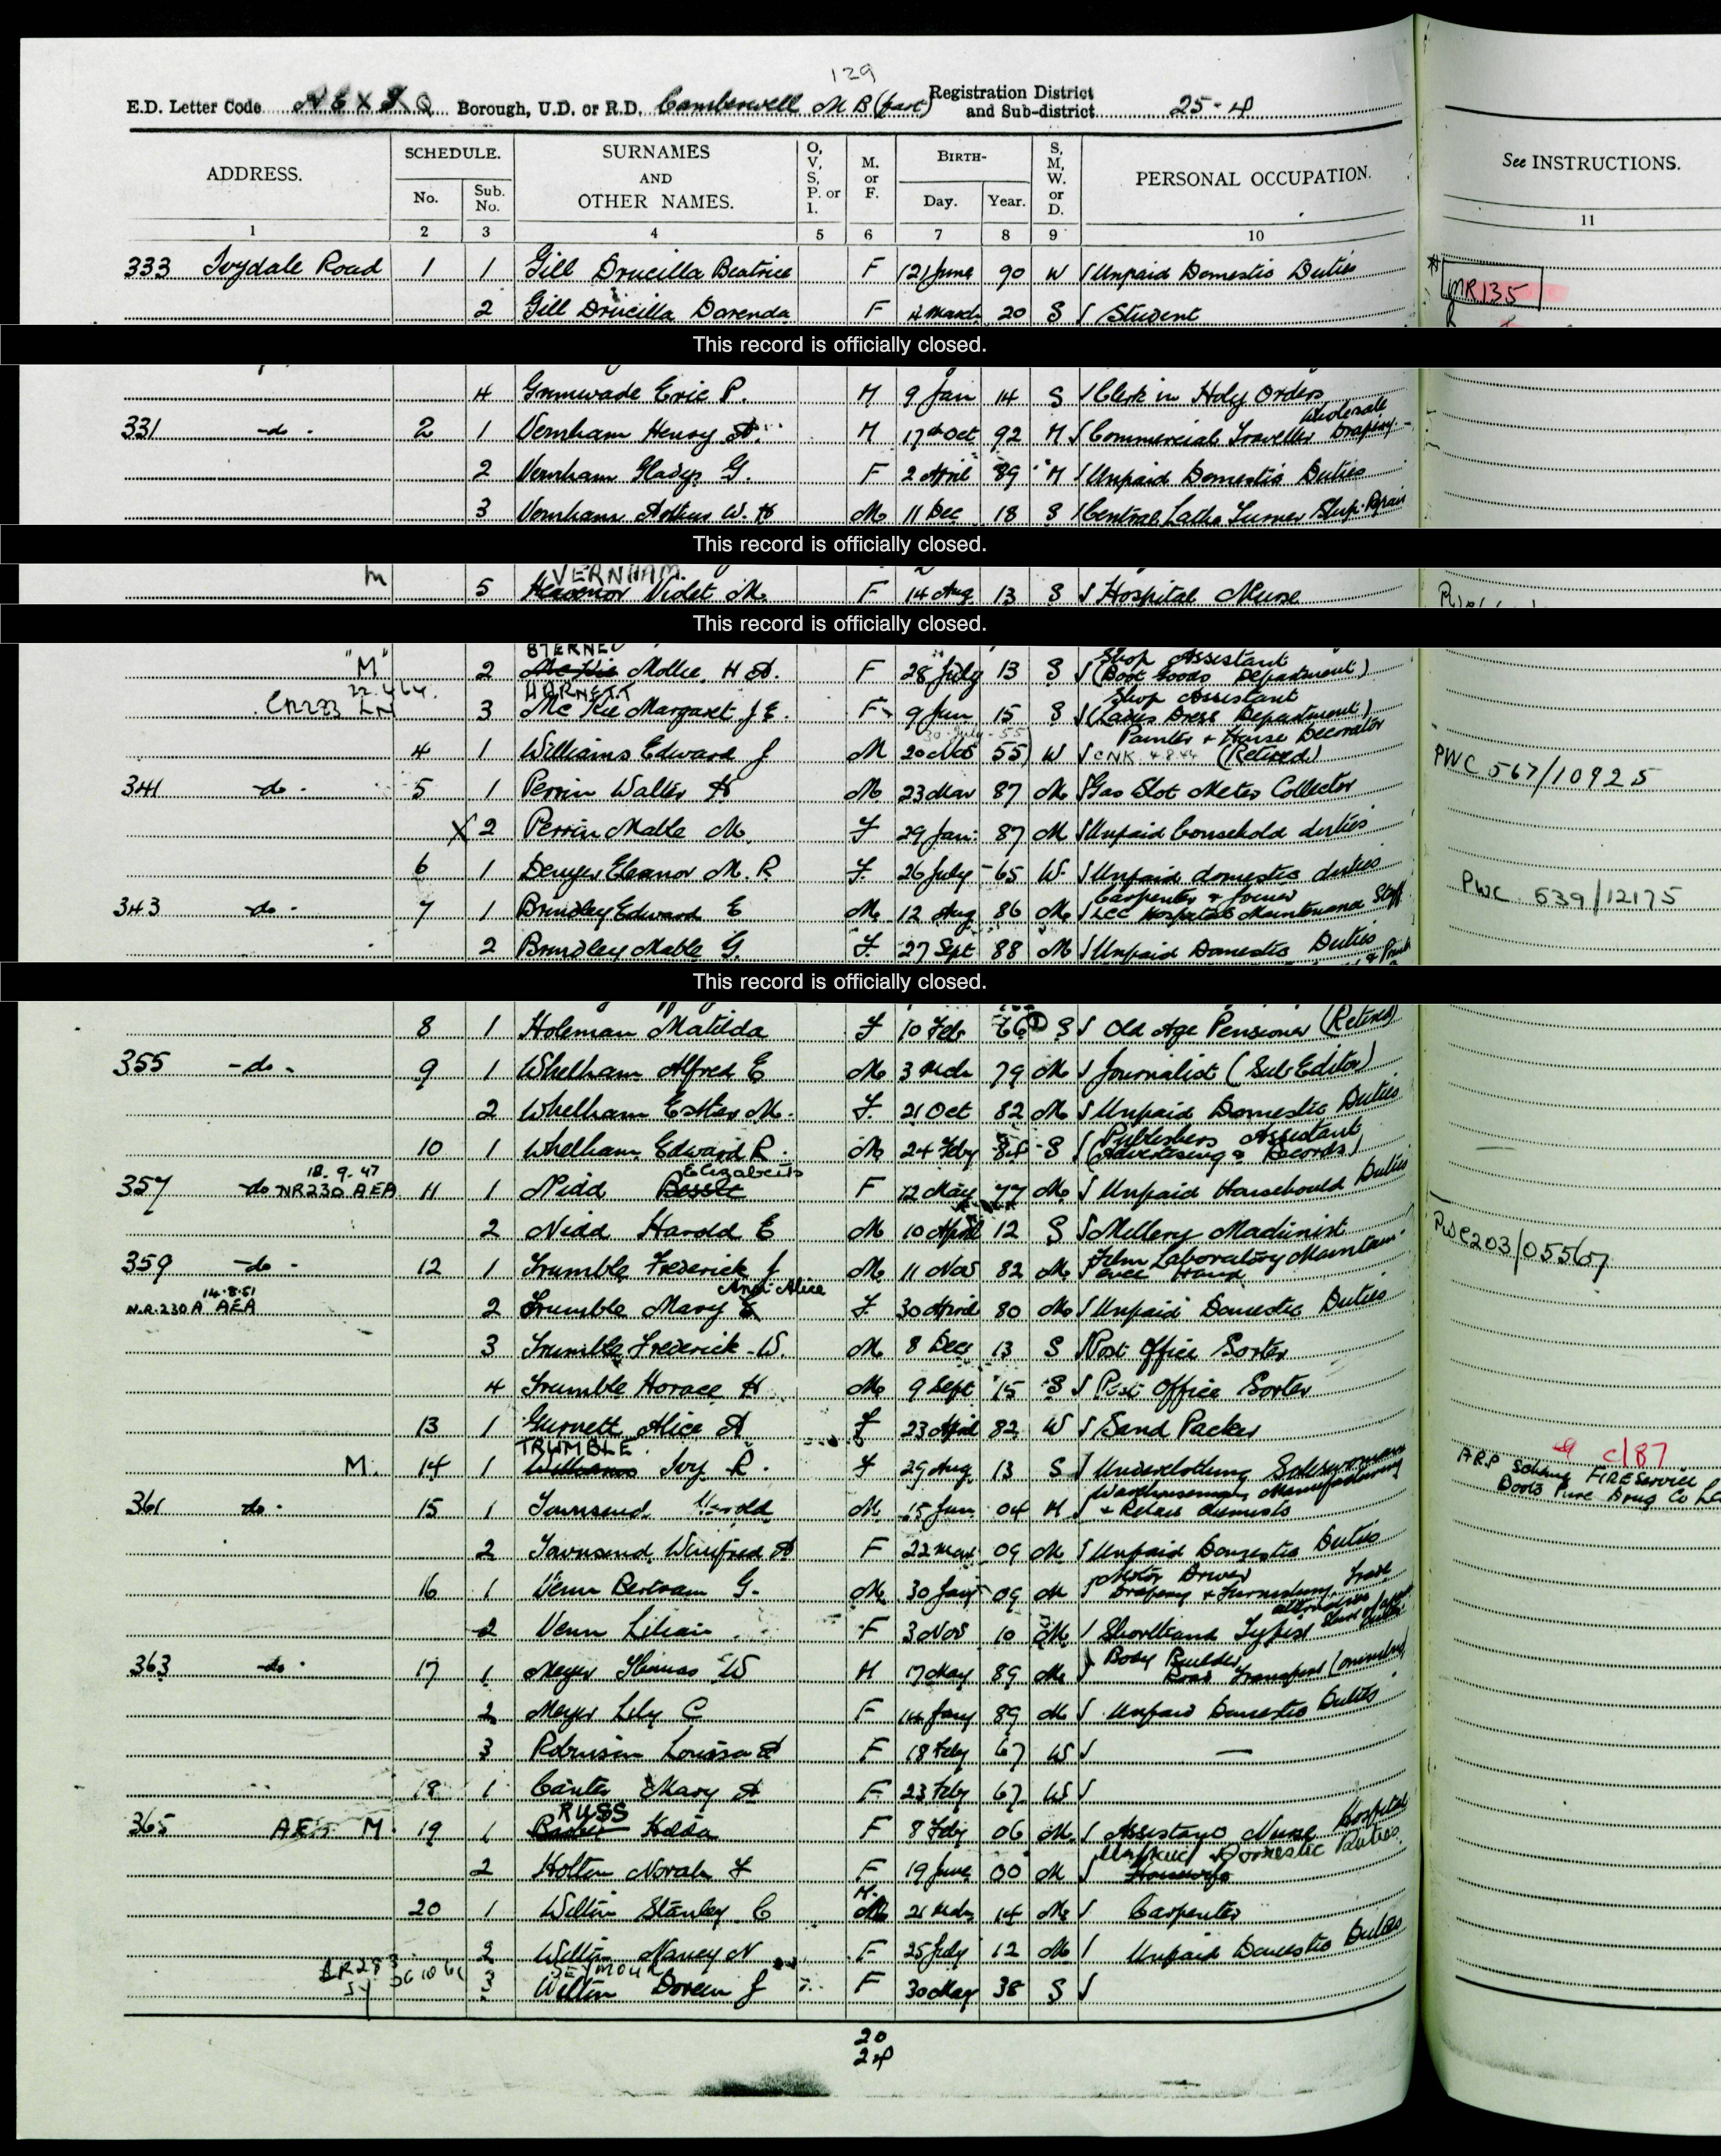 129
E.D. Letter Code Borough, U.D. or R.D. Camberwell M B (part) Registration District and Sub-district 25-4
ADDRESS. SCHEDULE. SURNAMES AND OTHER NAMES. O, V, S, P. or I. M. or F. BIRTH- S, M, W. or D. PERSONAL OCCUPATION. See INSTRUCTIONS.
No. Sub. No. Day. Year.
1 2 3 4 5 6 7 8 9 10 11
333 Ivydale Road 1 1 Gill Drucilla Beatrice F 12 June 90 W Unpaid Domestic Duties
2 Gill Drucilla Dorenda F March 20 S Student
This record is officially closed.
4 Grimwade Eric P. M 9 Jan 14 S Clerk in Holy Orders
331 -do- 2 1 Vernham Henry A. M 17th Oct 92 M Commercial Traveller Wholesale Drapery
2 Vernham Gladys G. F 2 April 89 M Unpaid Domestic Duties
3 Vernham Arthur W. H M 11 Dec 18 S Central Lathe Turner Ship Repair
This record is officially closed.
VERNHAM.
m 5 Violet M. F 14 Aug 13 S Hospital Nurse
This record is officially closed.
"M" 2 Mc Kie Mollie H A. F 28 July 13 S Shop Assistant (Boot Goods Department)
22.4.64. HARNETT
CR283 LN 3 Mc Kie Margaret J E. F 9 Jun 15 S Shop Assistant (Ladies Dress Department)
30-July-55
4 1 Williams Edward J M 20 Nov 55 W Painter + House Decorator (Retired)
PWC 567/10925
341 -do- 5 1 Perrin Walter H M 23 Mar 87 M Gas Slot Meter Collector
X 2 Perrin Mable M. F 29 Jan: 87 M Unpaid household duties
6 1 Denyer Eleanor M. R F. 26 July 65 W. Unpaid domestic duties
PWC 539/12175
343 -do- 7 1 Brindley Edward E M 12 Aug 86 M Carpenter & Joiner LCC Hospital Maintenance Staff
2 Brindley Mable G. F. 27 Sept 88 M Unpaid Domestic Duties
This record is officially closed.
8 1 Holeman Matilda F 10 Feb 66 S Old Age Pensioner (Retired)
355 -do- 9 1 Whelham Alfred E M 3 Mch 79 M Journalist (Sub Editor)
2 Whelham Esther M. F. 21 Oct 82 M Unpaid Domestic Duties
10 1 Whelham Edward R. M 24 Feby S Publishers Assistant (Advertising & Records)
18.9.47 Elizabeth
357 -do- NR230 AEA 11 1 Nidd Bessie F 12 May 77 M Unpaid Household Duties
2 Nidd Harold E M 10 April 12 S Millery Machinist
PWC203/05567
359 -do- 12 1 Trumble Frederick J M 11 Nov 82 M Film Laboratory Maintenance Hand
14.8.51 Ann Alice
N.R.230A AEA 2 Trumble Mary E F 30 April 80 M Unpaid Domestic Duties
3 Trumble Frederick W. M 8 Dec 13 S Post Office Sorter
4 Trumble Horace H M 9 Sept 15 S Post Office Sorter
13 1 Gurnett Alice A F 23 April 82 W Sand Packer
TRUMBLE.
M. 14 1 Williams Ivy R. F 29 Aug 13 S Underclothing Saleswoman
c/87
ARP Scheme FIRE Service
Boots Pure Drug Co
361 -do- 15 1 Townsend Harold M 15 Jan 04 M Warehouseman Manufacturing + Retail Chemists
2 Townsend Winifred A F 22 Mar 09 M Unpaid Domestic Duties
16 1 Venn Bertram G. M 30 Jany 09 M Motor Driver Drapery & Furnishing Trade
2 Venn Lilian F 3 Nov 10 M Shorthand Typist
363 -do- 17 1 Meyer Thomas W M 17 May 89 M Body Builder Road Transport
2 Meyer Lily C F 14 Jany 89 M Unpaid Domestic Duties
3 Robinson Louisa A F 18 Feby 67 W —
18 1 Canter Mary A F 23 Feby 67 W
RUSS
365 M 19 1 Hilda F 8 Feby 06 M Assistant Nurse Hospital
2 Holten Norah F F 19 June 00 M Unpaid Domestic Duties Housewife
20 1 Wiltin Stanley C M 21 Mch 14 M Carpenter
2 Wiltin Nancy N F 25 July 12 M Unpaid Domestic Duties
SEYMOUR
3 Wiltin Doreen J F 30 May 38 S
20
24